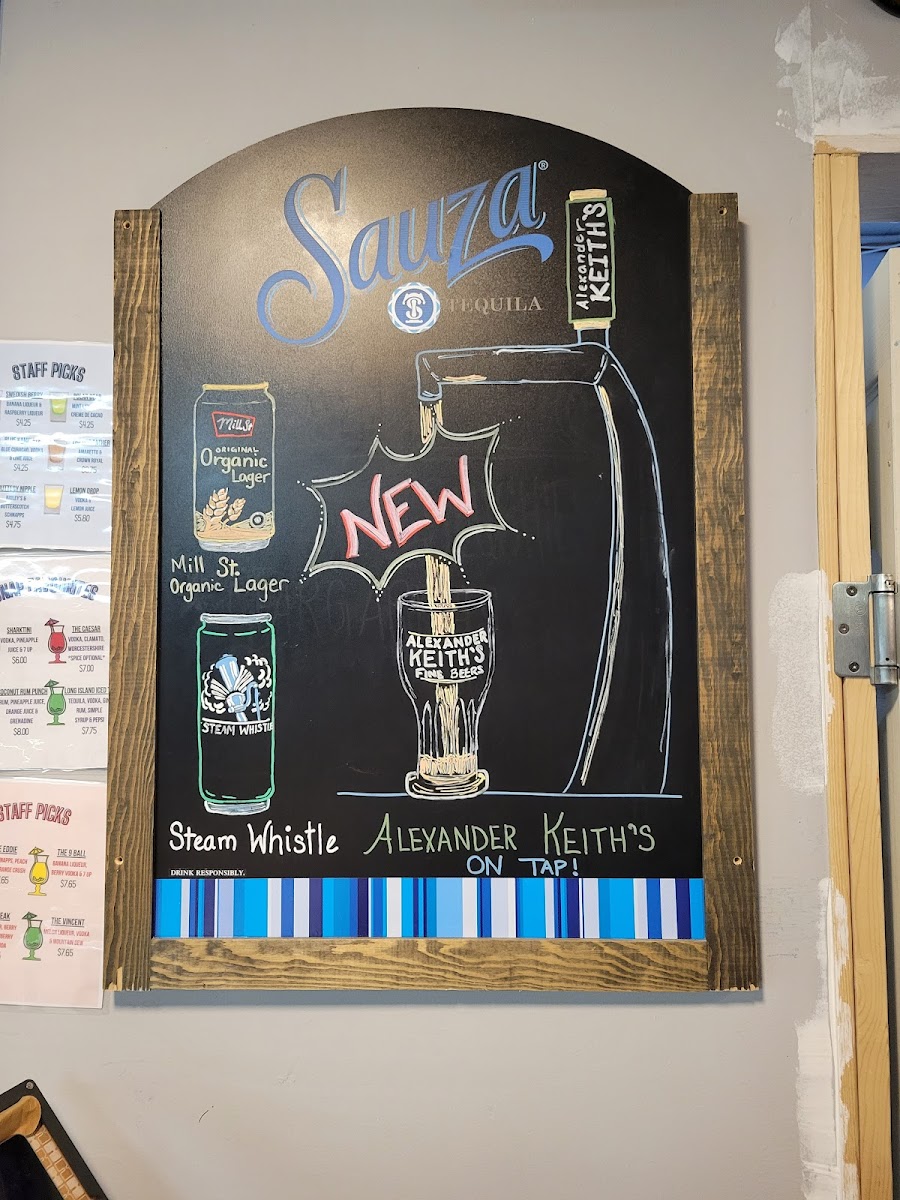 Sauza®
TEQUILA
Alexander
KEITH'S
Mill St.
ORIGINAL
Organic
Lager
NEW
Mill St.
Organic Lager
ALEXANDER
KEITH'S
FINE BEERS
STEAM WHISTLE
Steam Whistle
ALEXANDER KEITH'S
ON TAP!
DRINK RESPONSIBLY.
STAFF PICKS
SWEDISH BERRY
BANANA LIQUEUR &
RASPBERRY LIQUEUR
$4.25
CRÈME DE CACAO
$4.25
$4.25
AMARETTO &
CROWN ROYAL
NIPPLE
BAILEY'S &
BUTTERSCOTCH
SCHNAPPS
$4.75
LEMON DROP
VODKA &
LEMON JUICE
$5.80
SHARKTINI
VODKA, PINEAPPLE
JUICE & 7 UP
$6.00
THE CAESAR
VODKA, CLAMATO,
WORCESTERSHIRE
*SPICE OPTIONAL*
$7.00
COCONUT RUM PUNCH
RUM, PINEAPPLE JUICE,
ORANGE JUICE &
GRENADINE
$8.00
LONG ISLAND ICED
TEQUILA, VODKA, GIN
RUM, SIMPLE
SYRUP & PEPSI
$7.75
STAFF PICKS
EDDIE
PEACH
ORANGE CRUSH
THE 9 BALL
BANANA LIQUEUR,
BERRY VODKA & 7 UP
$7.65
BERRY
THE VINCENT
MELON LIQUEUR, VODKA
& MOUNTAIN DEW
$7.65